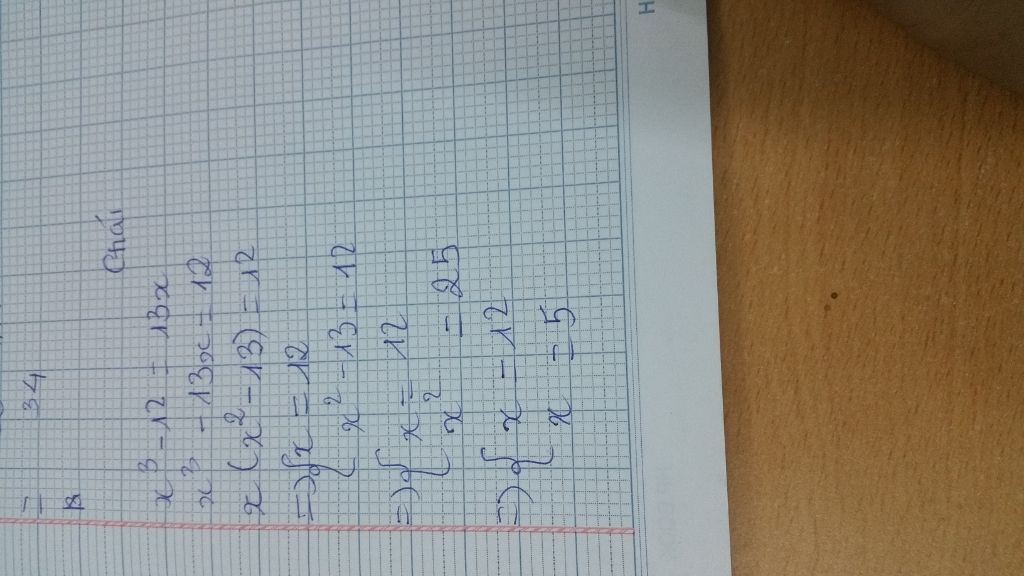 = 34
Chái
x³ - 12 = 13x
x³ - 13x = 12
x (x² - 13) = 12
=> { x = 12
x² - 13 = 12
=> { x = 12
x² = 25
=> { x = 12
x = 5